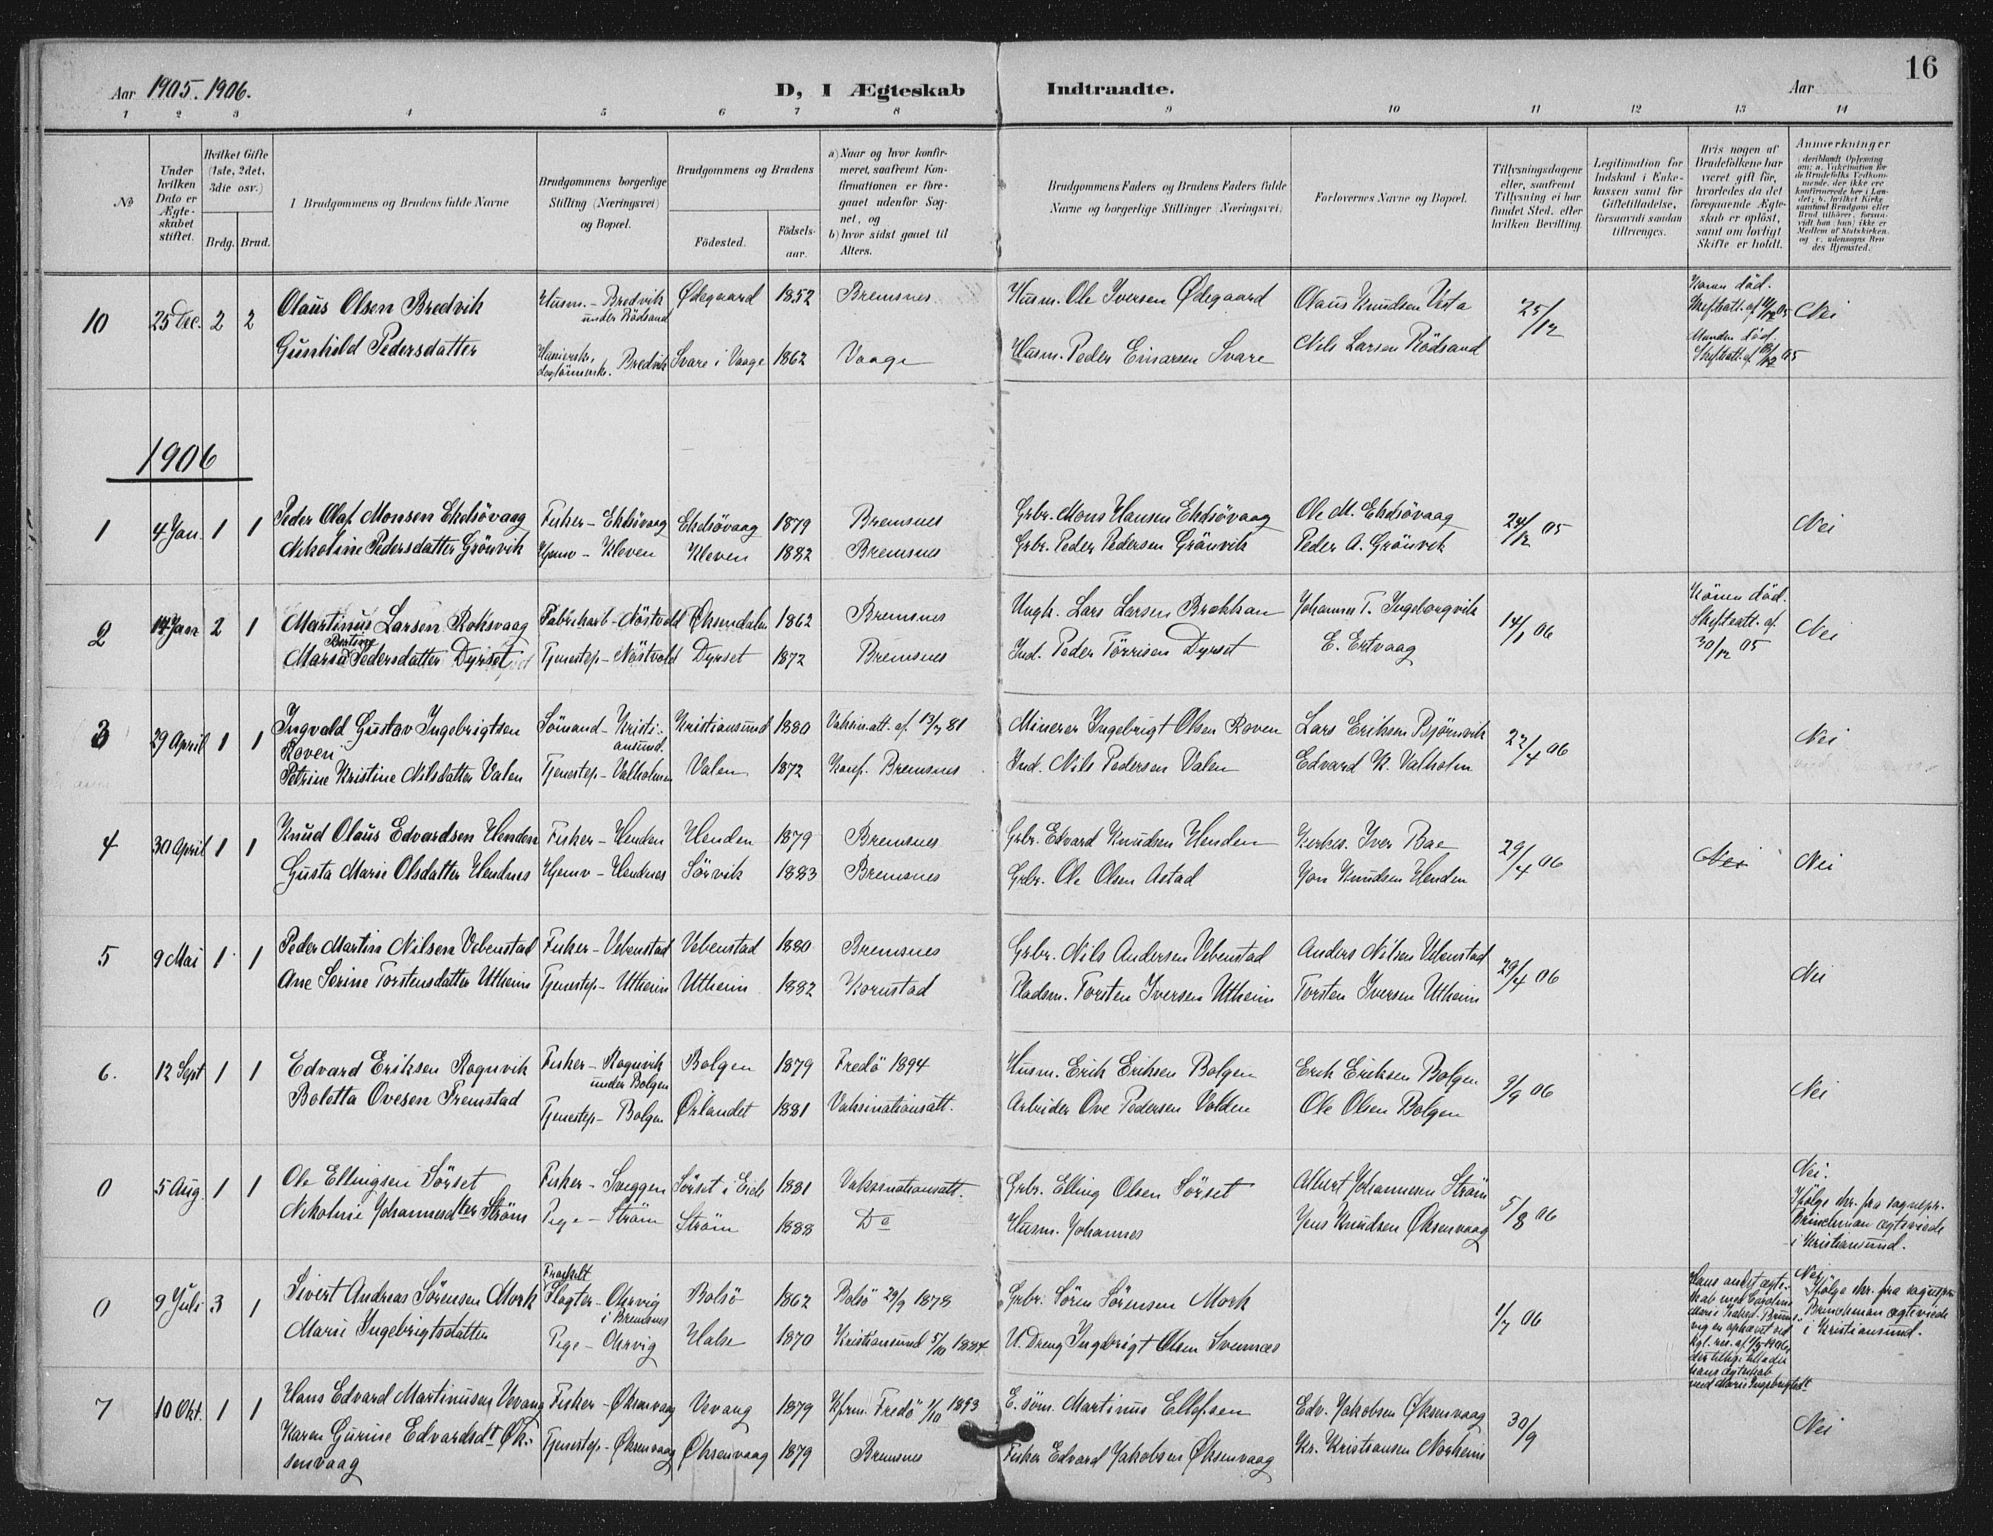 16
Aar 1905. 1906.
D, I Ægteskab Indtraadte.
Aar
1 2 3 4 5 6 7 8 9 10 11 12 13 14
№
Under hvilken Dato er Ægteskabet stiftet.
Hvilket Gifte (1ste, 2det, 3die osv.)
Brdg. Brud.
Brudgommens og Brudens fulde Navne
Brudgommens borgerlige Stilling (Næringsvei) og Bopæl.
Brudgommens og Brudens
Fødested.
Fødselsaar.
a) Naar og hvor konfirmeret, saafremt Konfirmationen er foregaaet udenfor Sognet, og
b) hvor sidst gaaet til Alters.
Brudgommens Faders og Brudens Faders fulde Navne og borgerlige Stillinger (Næringsvei)
Forlovernes Navne og Bopæl.
Tillysningsdagene eller, saafremt Tillysning ei har fundet Sted, efter hvilken Bevilling.
Legitimation for Indskud i Enkekassen samt for Giftetilladelse, forsaavidt saadan tiltrænges.
Hvis nogen af Brudefolkene har været gift før, hvorledes da det foregaaende Ægteskab er opløst, samt om lovligt Skifte er holdt.
Anmerkninger
10 25 Dec. 2 2 Olaus Olsen Bredvik Husm. - Bredvik under Rödsand Ødegaard 1852 Bremsnes Husm. Ole Iversen Ødegaard Olaus Knudsen Vista 25/12 Konen död. Skifteatt. af 05 Nei
Gunhild Pedersdatter Bredvik Svare i Vaage 1862 Vaage Husm. Peder Einarsen Svare Nils Larsen Rödsand Manden död. Skifteatt. af 05
1906
1 4 Jan. 1 1 Peder Olaf Monsen Ekelsövaag Fisker - Ekelsövaag Ekelsövaag 1879 Bremsnes Grbr. Mons Hansen Ekelsövaag Ole M. Ekelsövaag 24/12 05 Nei
Nikoline Pedersdatter Grönvik Hjemv - Kleven Kleven 1882 Bremsnes Grbr. Peder Pedersen Grönvik Peder A. Grönvik
2 14 Jan 2 1 Martinus Larsen Roksvaag Fabrikarb - Nöstvold Øksendalen 1862 Bremsnes Ungk. Lars Larsen Brakhan Johannes T. Ingeborgvik 14/1 06 Konen död. Skifteatt. af 30/12 05 Nei
Maria Bertine Pedersdatter Dyrset Tjenestep - Nöstvold Dyrset 1872 Bremsnes Ind. Peder Törrisen Dyrset E. Ertvaag
3 29 April 1 1 Ingvald Gustav Ingebrigtsen Roven Sömand - Kristiansund. Kristiansund 1880 Vaksin.att. af. 13/7 81 Minerer Ingebrigt Olsen Roven Lars Eriksen Bjørnvik 22/4 06 Nei
Petrine Kristine Nilsdatter Valen Tjenestep - Valholmen Valen 1872 Konf. Bremsnes Ind. Nils Pedersen Valen Edvard K. Valholm
4 30 April 1 1 Knud Olaus Edvardsen Henden Fisker - Henden Henden 1879 Bremsnes Grbr. Edvard Knudsen Henden Kirkes. Iver Bae 29/4 06 Nei Nei
Gusta Marie Olsdatter Hendnes Hjemv - Hendnes Sörvik 1883 Bremsnes Grbr. Ole Olsen Astad Jon Knudsen Henden
5 9 Mai 1 1 Peder Martin Nilsen Vebenstad Fisker - Vebenstad Vebenstad 1880 Bremsnes Grbr. Nils Andersen Vebenstad Anders Nilsen Vebenstad 29/4 06 Nei
Ane Serine Torstensdatter Utheim Tjenestep - Utheim Utheim 1882 Kornstad Pladsm. Torsten Iversen Utheim Torsten Iversen Utheim
6. 12 Sept 1 1 Edvard Eriksen Rognvik Fisker - Rognvik under Bolgen Bolgen 1879 Fredö 1894 Husm. Erik Eriksen Bolgen Erik Eriksen Bolgen 9/9 06 Nei
Boletta Ovesen Fremstad Tjenestep - Bolgen Ørlandet 1881 Vaksinationsatt. Arbeider Ove Pedersen Volden Ole Olsen Bolgen
0 5 Aug. 1 1 Ole Ellingsen Sörset Fisker - Sveggen Sörset i Eids 1881 Vaksinationsatt. Grbr. Elling Olsen Sörset Albert Johannesen Ström 5/8 06 Nei. Ifölge skr. fra sognepr. Brinchman ægteviede i Kristiansund.
Nikoline Johannesdtter Ström Pige - Ström Ström 1888 Do Husm. Johannes Jens Knudsen Øksenvaag
0 9 Juli 3 1 Sivert Andreas Sörensen Mork Fraskilt Slagter - Ohrvig i Bremsnes Bolsö 1862 Bolsö 29/9 1878 Grbr. Sören Sörensen Mork 1/7 06 Hans andet ægteskab med Nei Ifölge skr. fra sognepr. Brinchman ægteviede i Kristiansund.
Marie Ingebrigtsdatter Pige - Ohrvig Halse 1870 Kristiansund 5/10 1884 U. Dreng Ingebrigt Olsen Svennes
7 10 Okt. 1 1 Hans Edvard Martinusen Vevang Fisker - Øksenvaag Vevang 1879 Kfrm. Fredö 1/10 1893 E. söm. Martinus Ellefsen Edv. Jakobsen Øksenvaag 30/9 Nei
Karen Gurine Edvardsdt Øksenvaag Tjenestep - Øksenvaag Øksenvaag 1879 Bremsnes Fisker Edvard Jakobsen Øksenvaag Kr. Kristiansen Norheim